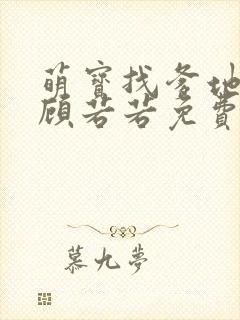 萌寶找爹地
顾若若免費
慕九夢